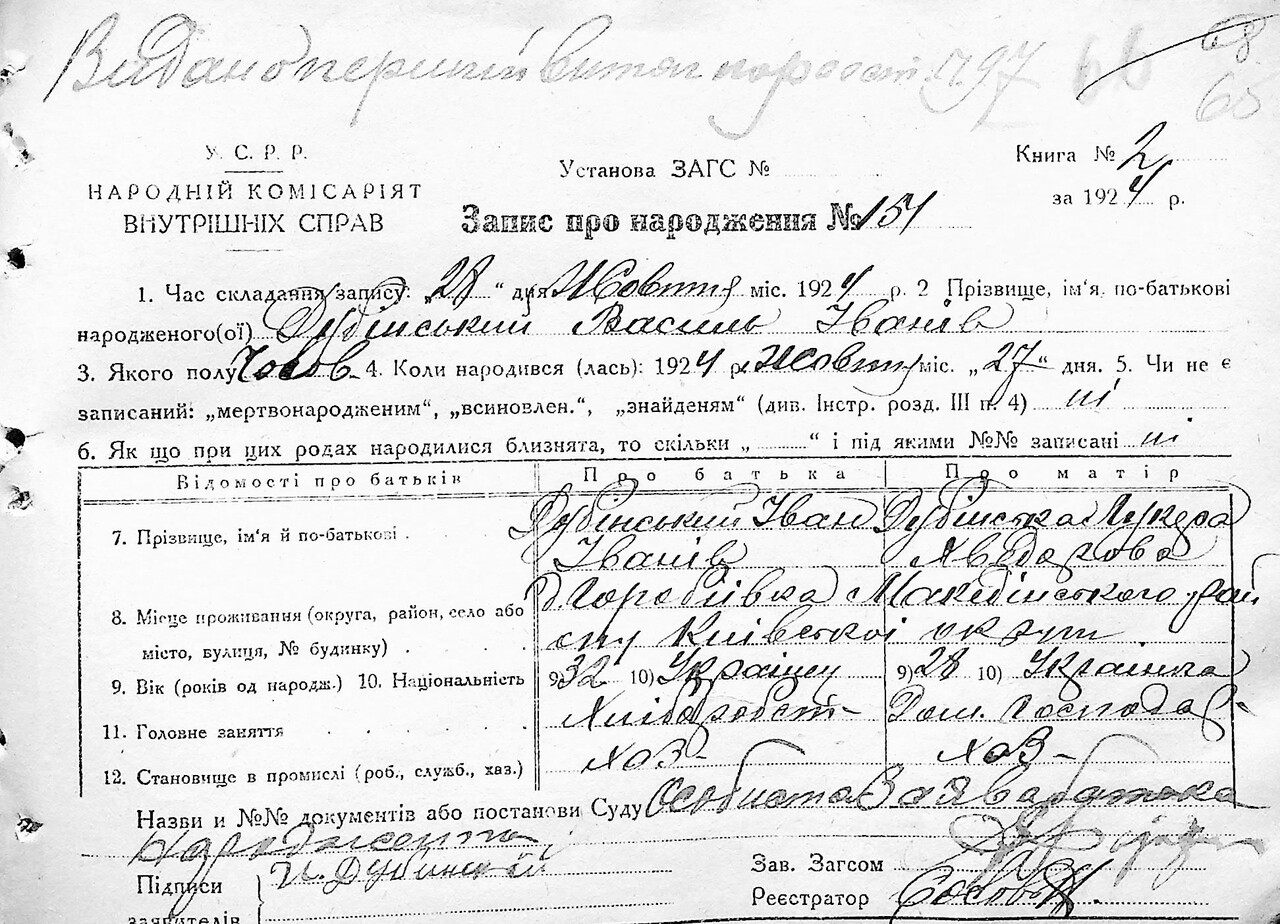 Видано перший витяг 197 66 68
65
У. С. Р. Р.
НАРОДНІЙ КОМІСАРІЯТ
ВНУТРІШНІХ СПРАВ
Установа ЗАГС №
Книга № 2
за 1924 р.
Запис про народження № 151
1. Час складання запису: „28“ дня Жовтня міс. 1924 р. 2 Прізвище, ім'я, по-батькові
народженого(ої) Дубінський Василь Іванів
3. Якого полу Чолов. 4. Коли народився (лась): 1924 р. Жовтня міс. „27“ дня. 5. Чи не є
записаний: „мертвонародженим“, „всиновлен.“, „знайденям“ (див. Інстр. розд. III п. 4) ні
6. Як що при цих родах народилися близнята, то скільки „ “ і під якими №№ записані ні
Відомості про батьків Про батька Про матір
7. Прізвище, ім'я й по-батькові Дубінський Іван Дубінська Лукера
Іванів
8. Місце проживання (округа, район, село або д. Горобіївка
місто, вулиця, № будинку) Київської округи
9. Вік (років од народж.) 10. Національність 9) 32 10) Українец 9) 28 10) Українка
11. Головне заняття Хліборобст- Дом. Господар-
12. Становище в промислі (роб., служб., хаз.) хоз- хоз-
Назви и №№ документів або постанови Суду Особиста Заява батька
Підписи И. Дубинский
заявителів
Зав. Загсом
Реєстратор